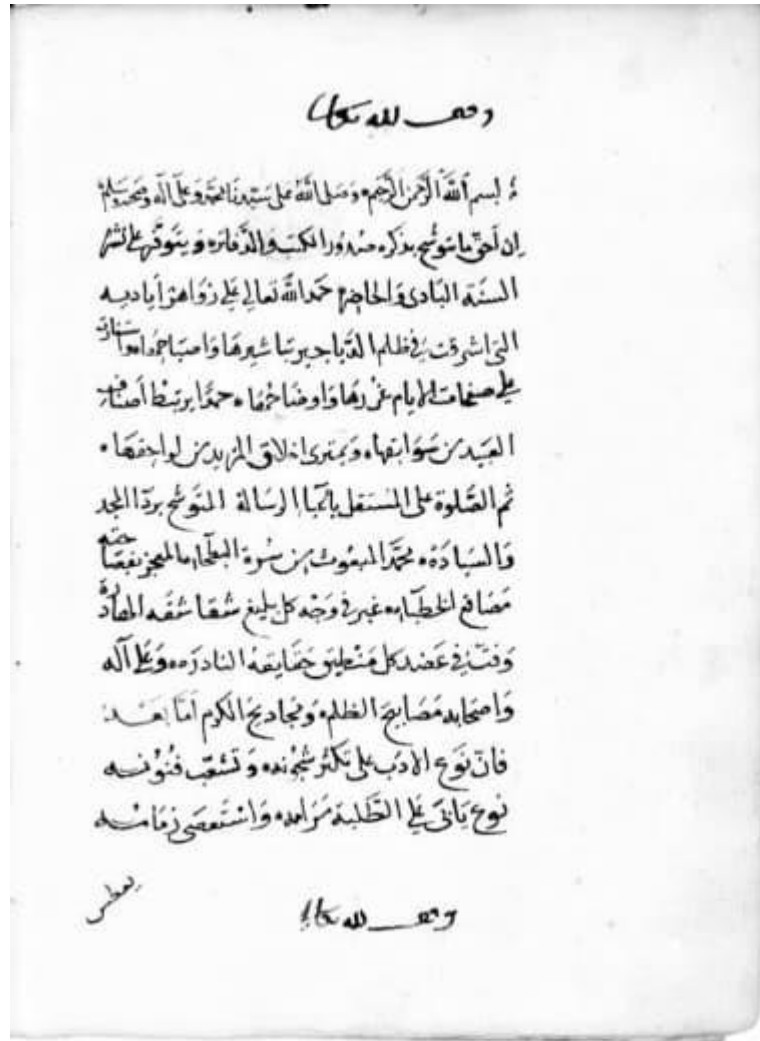 وقف لله تعالى
بسم الله الرحمن الرحيم وصلى الله على سيدنا محمد وعلى آله وصحبه وسلم
إن أحق ما يتوشح بذكره صدور الكتب والدفاتر ويتوفر على نشره
السنة البادي والحاضر حمد الله تعالى على زواهر أياديه
التي اشرقت في ظلم الدياجير تباشيرها واصباحها واستنارت
على صفحات الايام غررها واوضاحها حمدا يرتبط
العتيد من سوابقها ويمترى اخلاف المزيد من لواحقها
ثم الصلوة على المستقل باعباء الرسالة المتوشح برداء المجد
والسيادة محمد المبعوث من سرة البطحاء المعجز بفصاحته
مصاقع الخطباء غبر في وجه كل بليغ شقاشقه الهادرة
وفت في عضد كل منطيق حقايقه النادرة وعلى آله
واصحابه مصابيح الظلم ومجاديح الكرم اما بعد
فان نوع الادب على تكثر شجونه وتشعب فنونه
نوع يأبى على الطلبة مرامه واستعصى زمامه
وقف لله تعالى